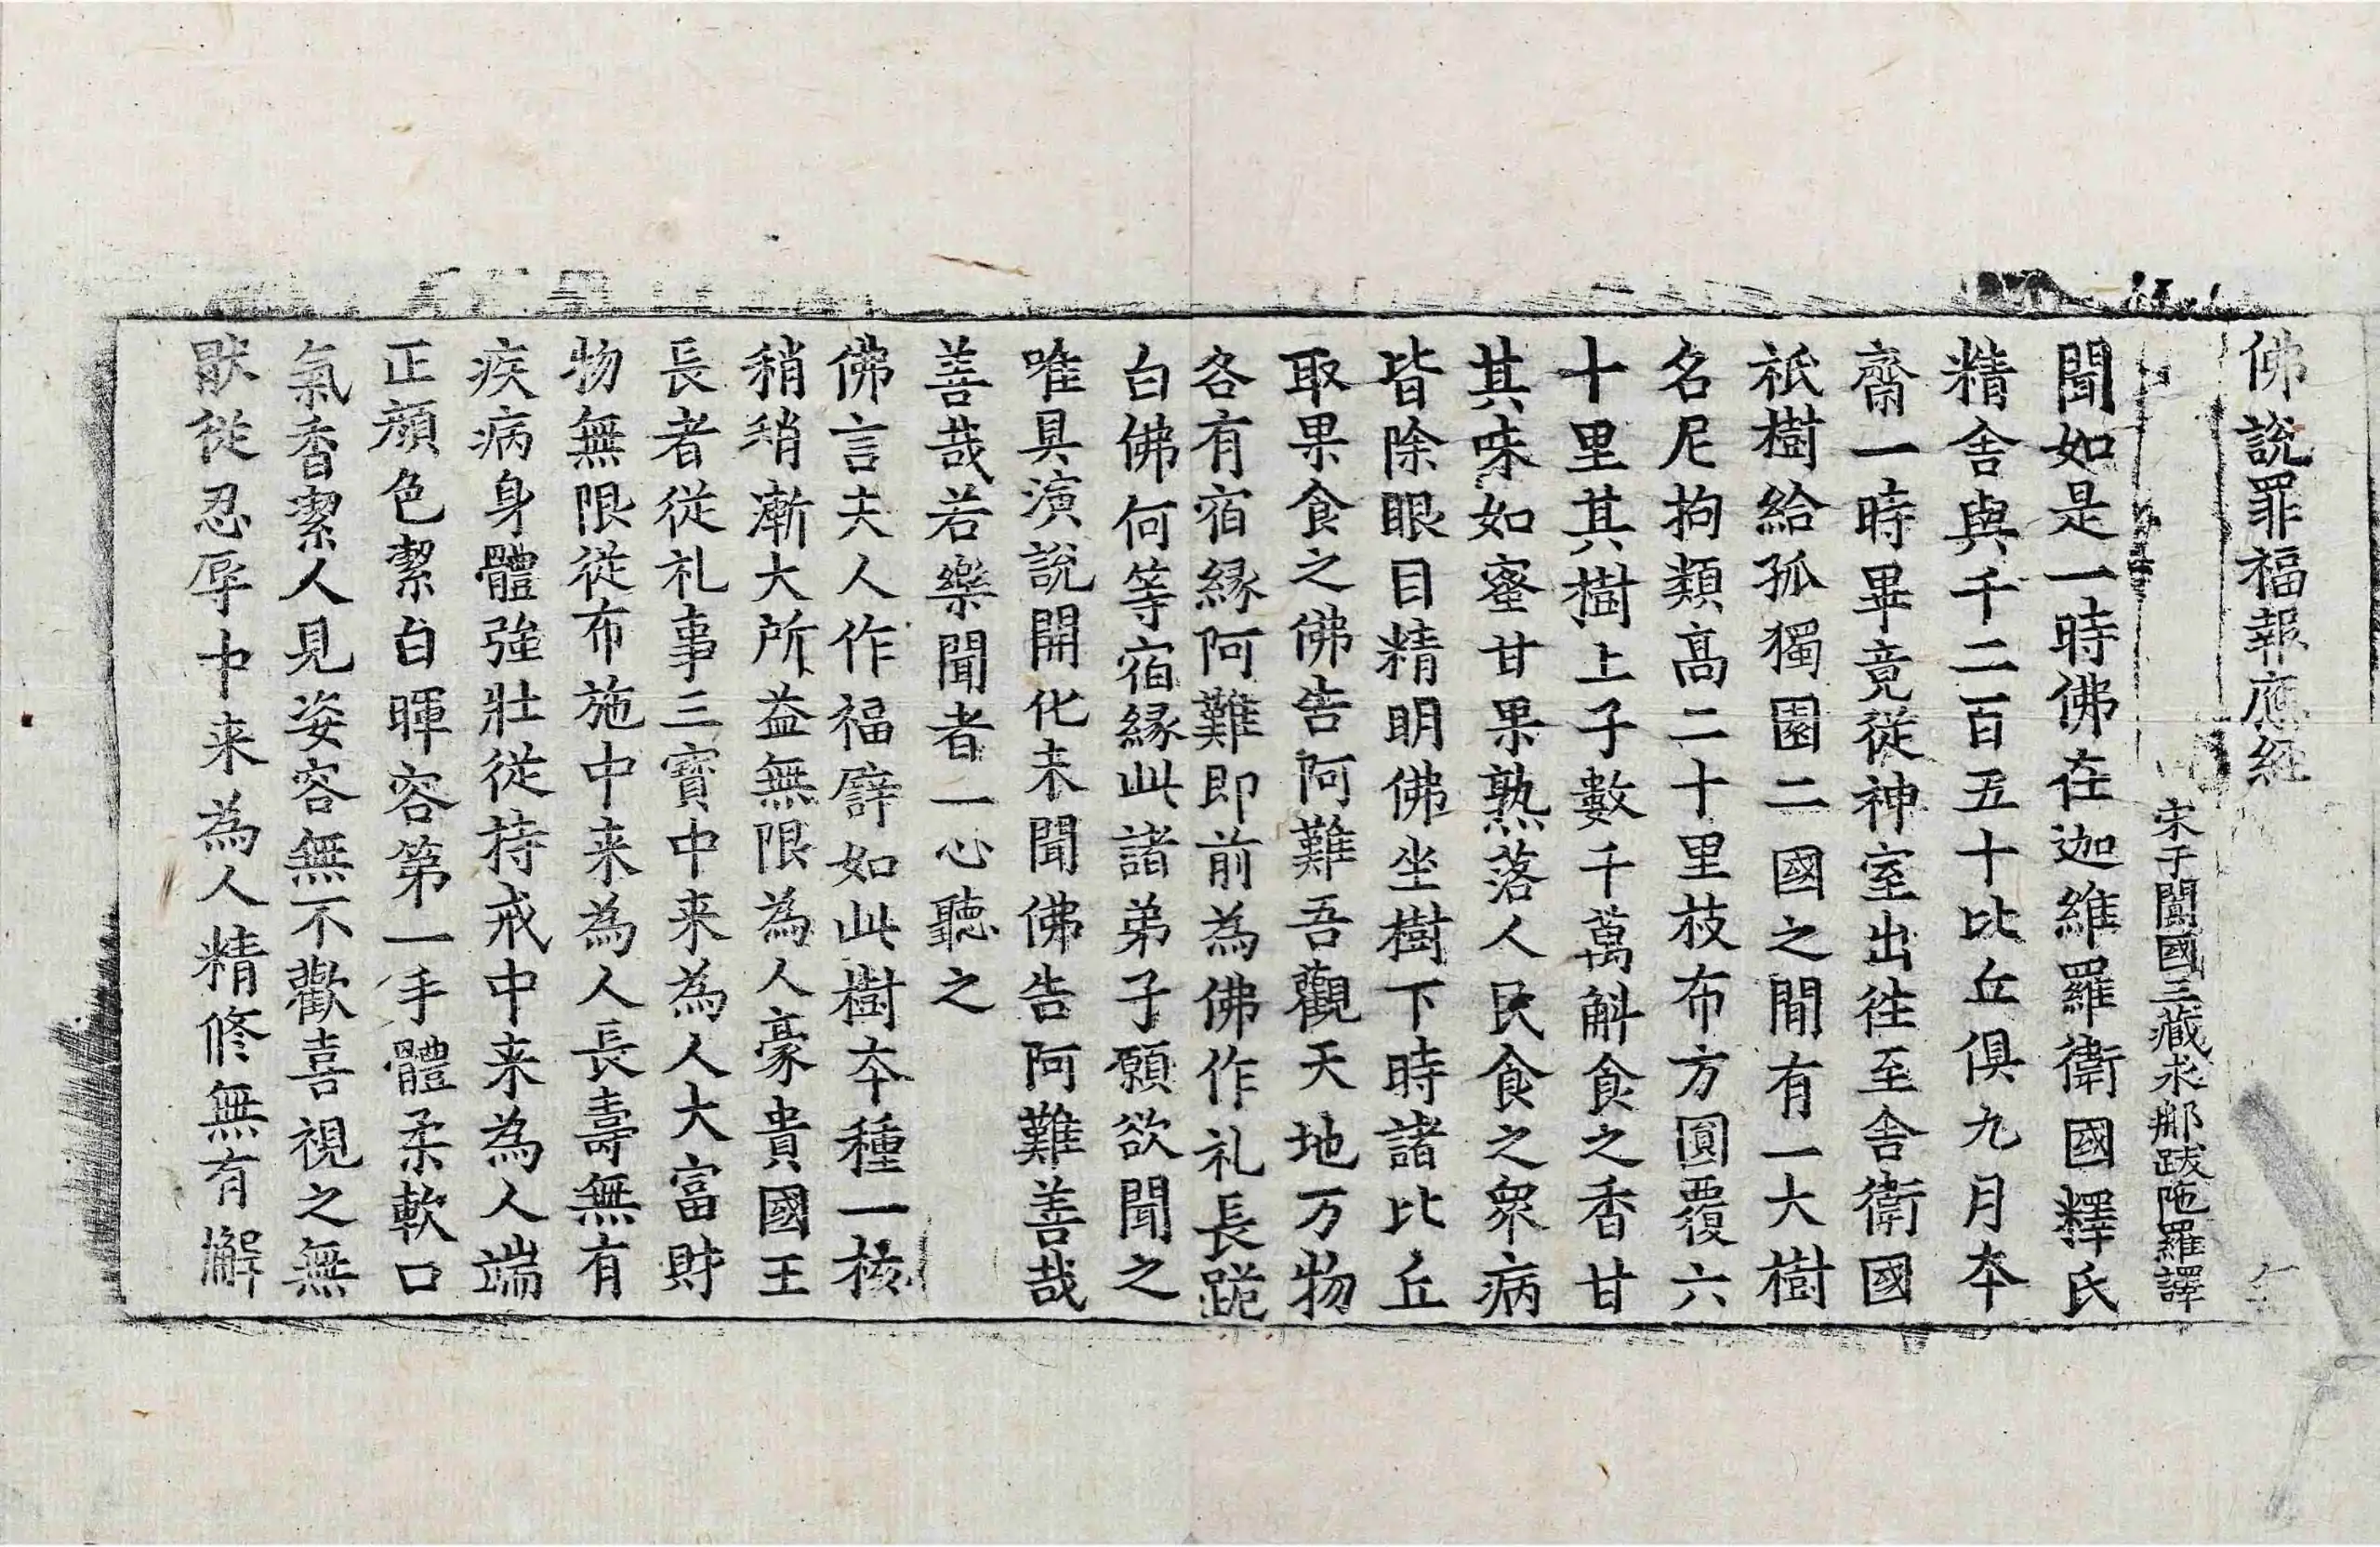 佛說罪福報應經
宋于闐國三藏求那跋陁羅譯
聞如是一時佛在迦維羅衛國釋氏
精舍與千二百五十比丘俱九月夲
齋一時畢竟從神室出往至舍衛國
祇樹給孤獨園二國之閒有一大樹
名尼拘類髙二十里枝布方圓覆六
十里其樹上子數千萬斛食之香甘
其味如蜜甘果熟落人民食之衆病
皆除眼目精明佛坐樹下時諸比丘
取果食之佛告阿難吾觀天地万物
各有宿縁阿難即前為佛作礼長跪
白佛何等宿縁此諸弟子願欲聞之
唯具演說開化未聞佛告阿難善哉
善哉若樂聞者一心聽之
佛言夫人作福譬如此樹夲種一核
稍稍漸大所益無限為人豪貴國王
長者從礼事三寶中来為人大富財
物無限従布施中来為人長壽無有
疾病身體強壯從持戒中来為人端
正顔色潔白暉容第一手體柔軟口
氣香潔人見姿容無不歡喜視之無
猒從忍辱中来為人精修無有懈